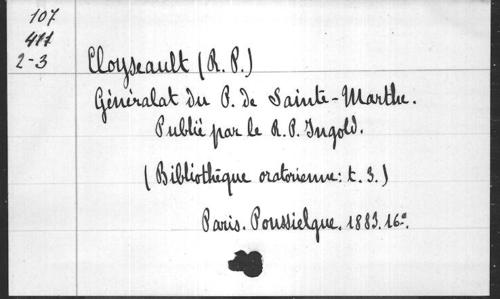 107
411
2-3
Cloyseault (R. P.)
Généralat du P. de Sainte-Marthe.
Publié par le R. P. Ingold.
(Bibliothèque oratorienne: t. 3.)
Paris. Poussielgue. 1883. 16º.